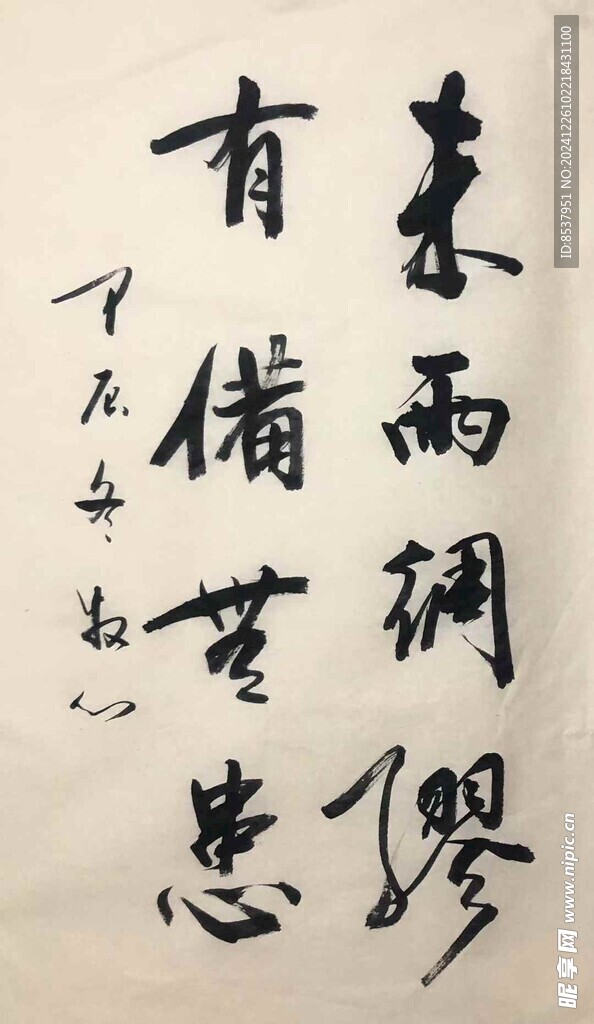 未雨绸缪
有備無患
甲辰冬牧心
ID:8537951 NO:20241226102218431100
昵享网 www.nipic.cn